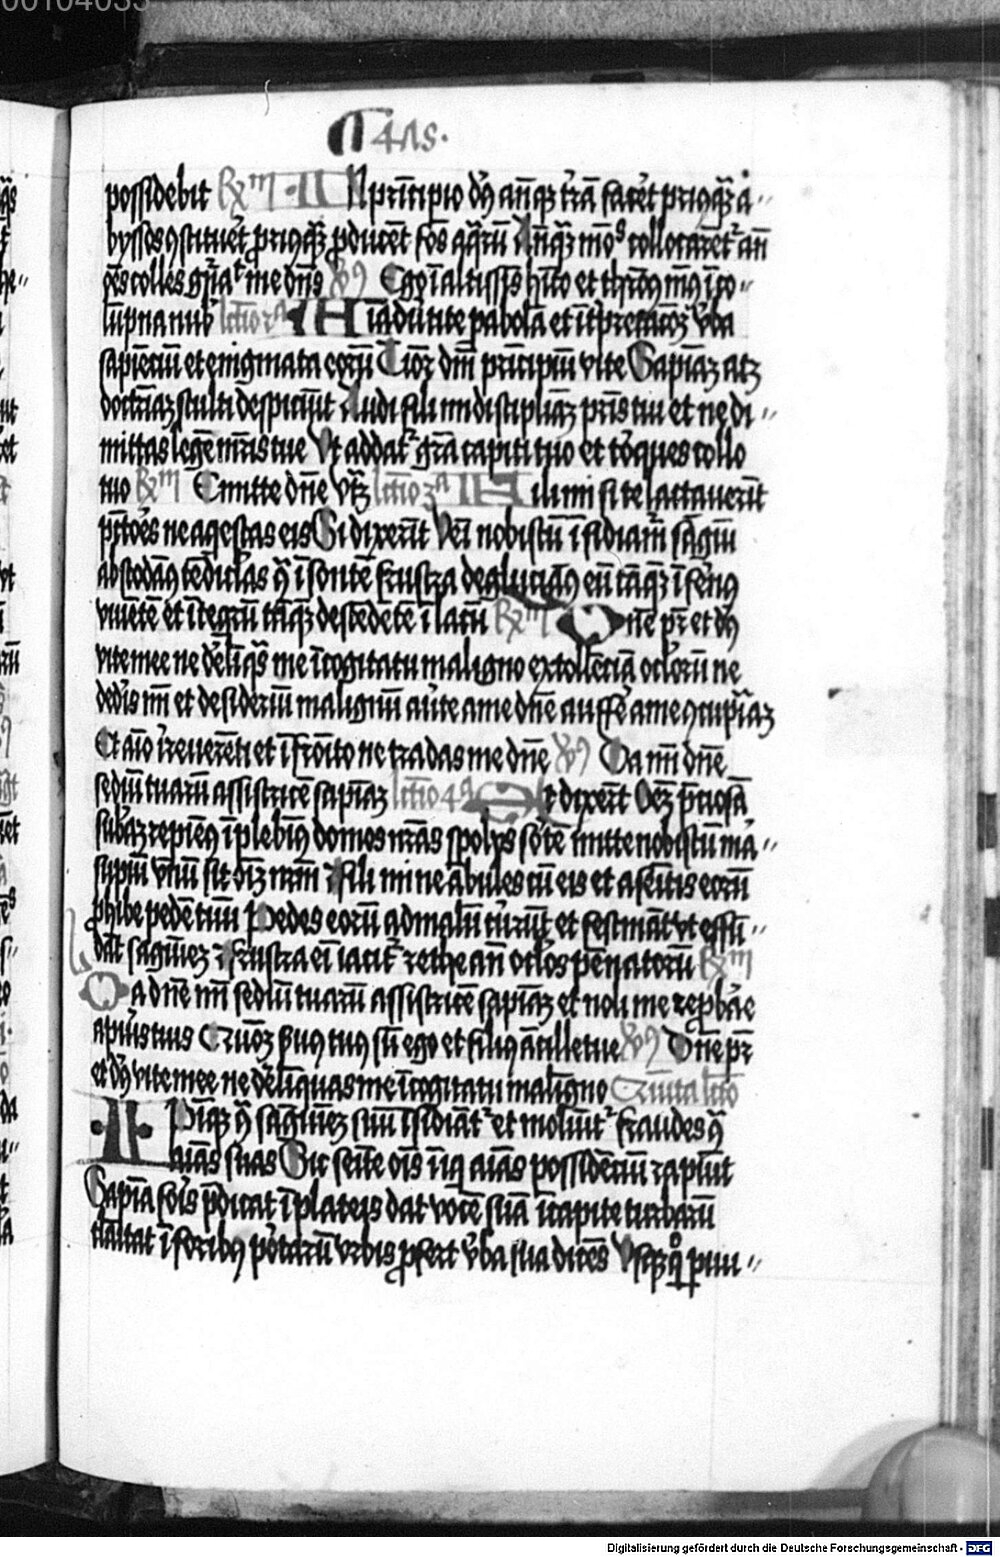 00104033
possidebit Rm In principio ds anteqz terra faceret priusqz a
byssos constitueret priusqz produceret fontes aquarum Anteqz montes collocarentur an
omnes colles generavit me dns vs Ego in altissimis habito et thronus meus in co
lumpna nubis lectio 2a Animadvertite parabolam et interpretacionem verba
sapiencium et enigmata eorum Timor domini principium vite Sapienciam atqz
doctrinam stulti despiciunt Audi fili mi disciplinam patris tui et ne di
mittas legem matris tue Ut addatur gracia capiti tuo et torques collo
tuo Rm Emitte dne lectio 3a Fili mi si te lactaverint
peccatores ne acquiescas eis Si dixerint Veni nobiscum insidiamur sanguini
abscondamus tendiculas insontem frustra deglutiamus eum tamqz infernus
viventem et integrum tamqz descendentem in lacum Rm Dne pater et ds
vite mee ne derelinquas me in cogitatu maligno extollenciam oculorum ne
dederis michi et desiderium malignum averte a me dne aufer a me concupiscenciam
Et animo irreverenti et infrunito ne tradas me dne vs Da michi dne
sedium tuarum assistricem sapienciam lectio 4a Et dixerint Omnem preciosam
substanciam reperiemus implebimus domos nostras spoliis sortem mitte nobiscum mar
supium unum sit omnium nostrum Fili mi ne ambules cum eis et a semitis eorum
prohibe pedem tuum Pedes eorum ad malum currunt et festinant ut effun
dant sanguinem Frustra enim iacitur rethe ante oculos pennatorum Rm
Da dne michi sedium tuarum assistricem sapienciam et noli me reprobare
a pueris tuis Quoniam servus tuus sum ego et filius ancille tue vs Dne pater
et ds vite mee ne derelinquas me in cogitatu maligno Quinta lectio
Ipsi qz sanguinem suum insidiantur et moliuntur fraudes contra
animas suas Sic semite omnis avari animas possidencium rapiunt
Sapiencia foris predicat in plateis dat vocem suam in capite turbarum
clamitat in foribus portarum urbis profert verba sua dicens Usqz quo parvu
Digitalisierung gefördert durch die Deutsche Forschungsgemeinschaft - DFG